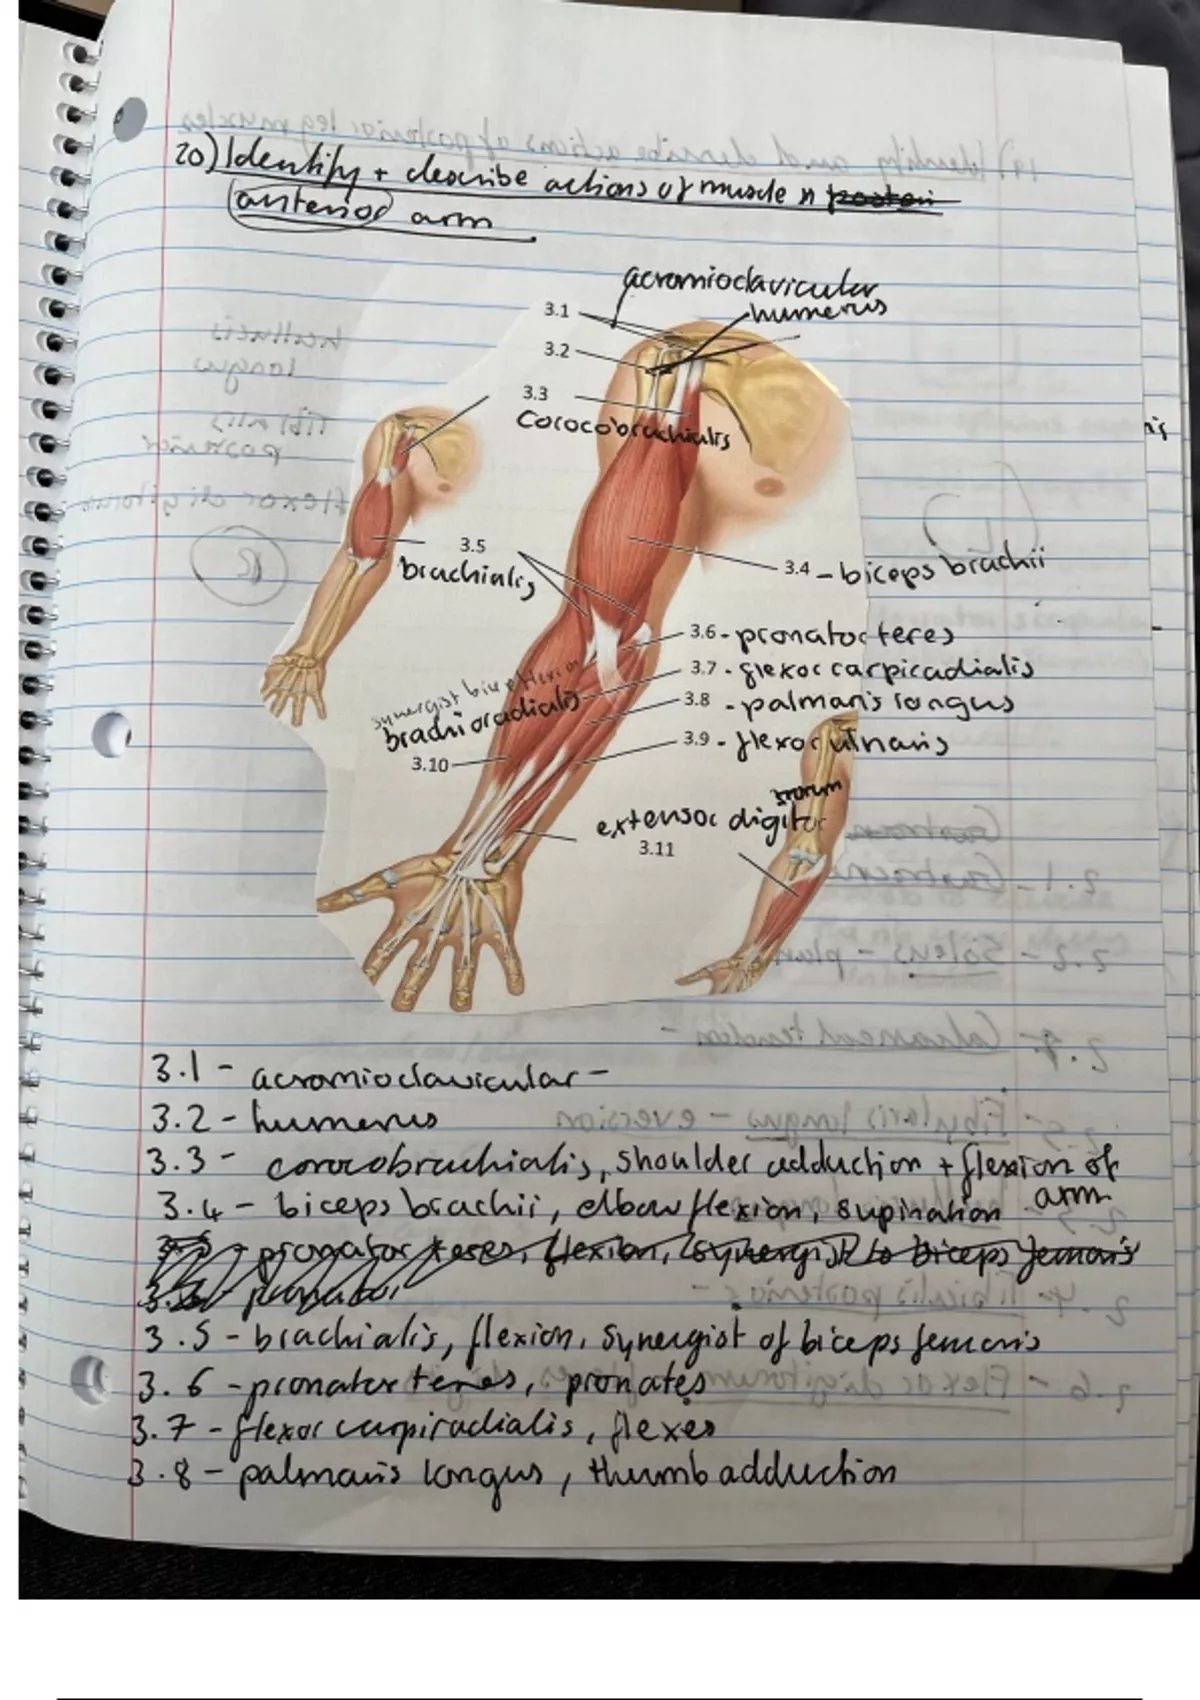 20) Identify + describe actions of muscle n posteri
anterior arm
acromioclavicular
3.1
humerus
3.2
3.3
Cococobrachialis
3.5
brachialis
3.4 - biceps brachii
3.6 - pronator teres
3.7 - flexor carpiradialis
3.8 - palmaris longus
3.9 - flexor ulnaris
synergist bicep flexion
brachioradialis
3.10
extensor digitorum
3.11
R
3.1 - acromioclavicular -
3.2 - humerus
3.3 - corocobrachialis, shoulder adduction + flexion of arm
3.4 - biceps brachii, elbow flexion, supination
3.5 - pronator teres, flexion, (synergist to biceps femoris
3.6 - pronator
3.5 - brachialis, flexion, synergist of biceps femoris
3.6 - pronator teres, pronates
3.7 - flexor carpiradialis, flexes
3.8 - palmaris longus, thumb adduction